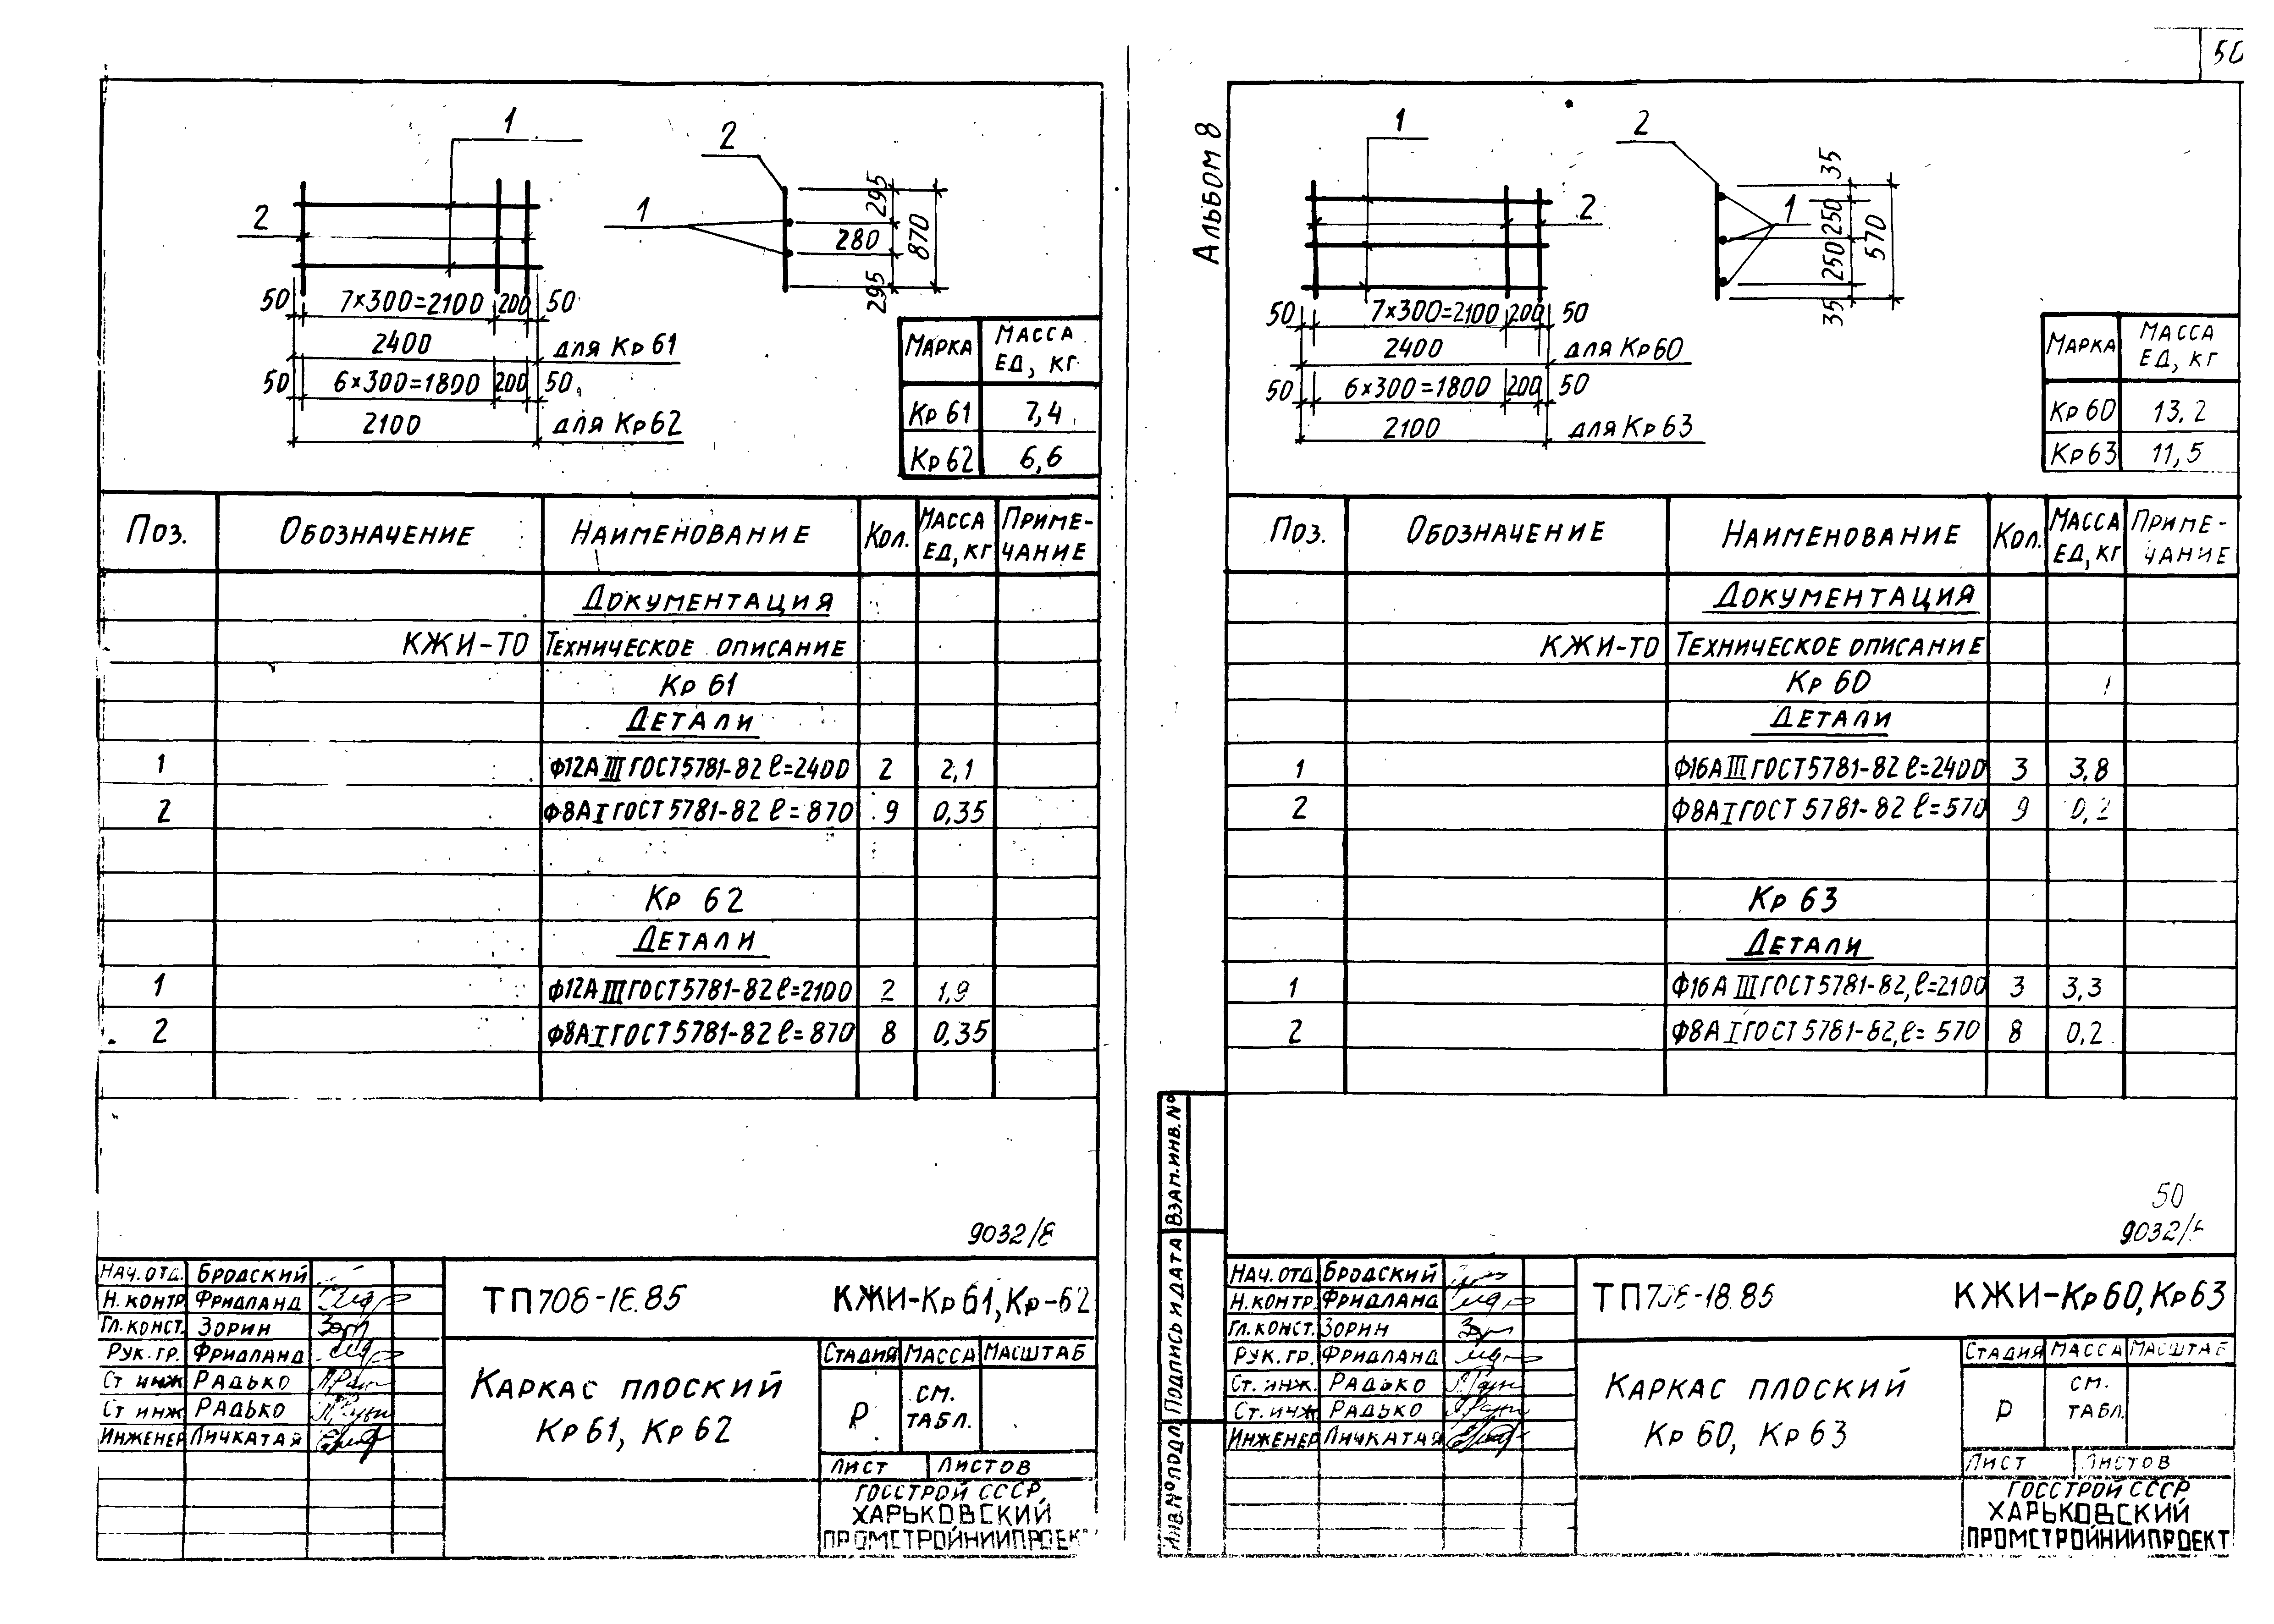 1
2
2
1
295
280
295
870
50
7×300=2100
200
50
2400
для Кр 61
50
6×300=1800
200
50
2100
для Кр 62
Марка
Масса ед, кг
Кр 61
7,4
Кр 62
6,6
Поз.
Обозначение
Наименование
Кол.
Масса ед, кг
Приме-чание
Документация
КЖИ-ТО
Техническое описание
Кр 61
Детали
1 Ф12АIII ГОСТ5781-82 ℓ=2400 2 2,1
2 Ф8АI ГОСТ 5781-82 ℓ=870 9 0,35
Кр 62
Детали
1 Ф12АIII ГОСТ5781-82 ℓ=2100 2 1,9
2 Ф8АI ГОСТ5781-82 ℓ=870 8 0,35
9032/8
Нач. отд. Бродский
Н. контр Фридланд
Гл. конст. Зорин
Рук. гр. Фридланд
Ст инж Радько
Ст инж Радько
Инженер Личкатая
КЖИ-Кр 61, Кр-62
Каркас плоский
Кр 61, Кр 62
Стадия Масса Масштаб
Р
см. табл.
Лист
Листов
Госстрой СССР
Харьковский
Промстройниипроект
50
Альбом 8
1
2
2
1
35
250
250
35
570
50
7×300=2100
200
50
2400
для Кр60
50
6×300=1800
200
50
2100
для Кр 63
Марка
Масса ед, кг
Кр 60
13,2
Кр 63
11,5
Поз.
Обозначение
Наименование
Кол.
Масса ед, кг
Приме-чание
Документация
КЖИ-ТО
Техническое описание
Кр 60
Детали
1 Ф16АIII ГОСТ5781-82 ℓ=2400 3 3,8
2 Ф8АI ГОСТ 5781-82 ℓ=570 9 0,2
Кр 63
Детали
1 Ф16АIII ГОСТ5781-82, ℓ=2100 3 3,3
2 Ф8АI ГОСТ 5781-82, ℓ=570 8 0,2
50
Взам. инв. №
Подпись и дата
Инв. № подл.
Нач. отд. Бродский
Н. контр. Фридланд
Гл. конст. Зорин
Рук. гр. Фридланд
Ст. инж. Радько
Ст. инж Радько
Инженер Личкатая
КЖИ-Кр 60, Кр 63
Каркас плоский
Кр 60, Кр 63
Стадия Масса Масштаб
Р
см. табл.
Лист
Листов
Госстрой СССР
Харьковский
Промстройниипроект